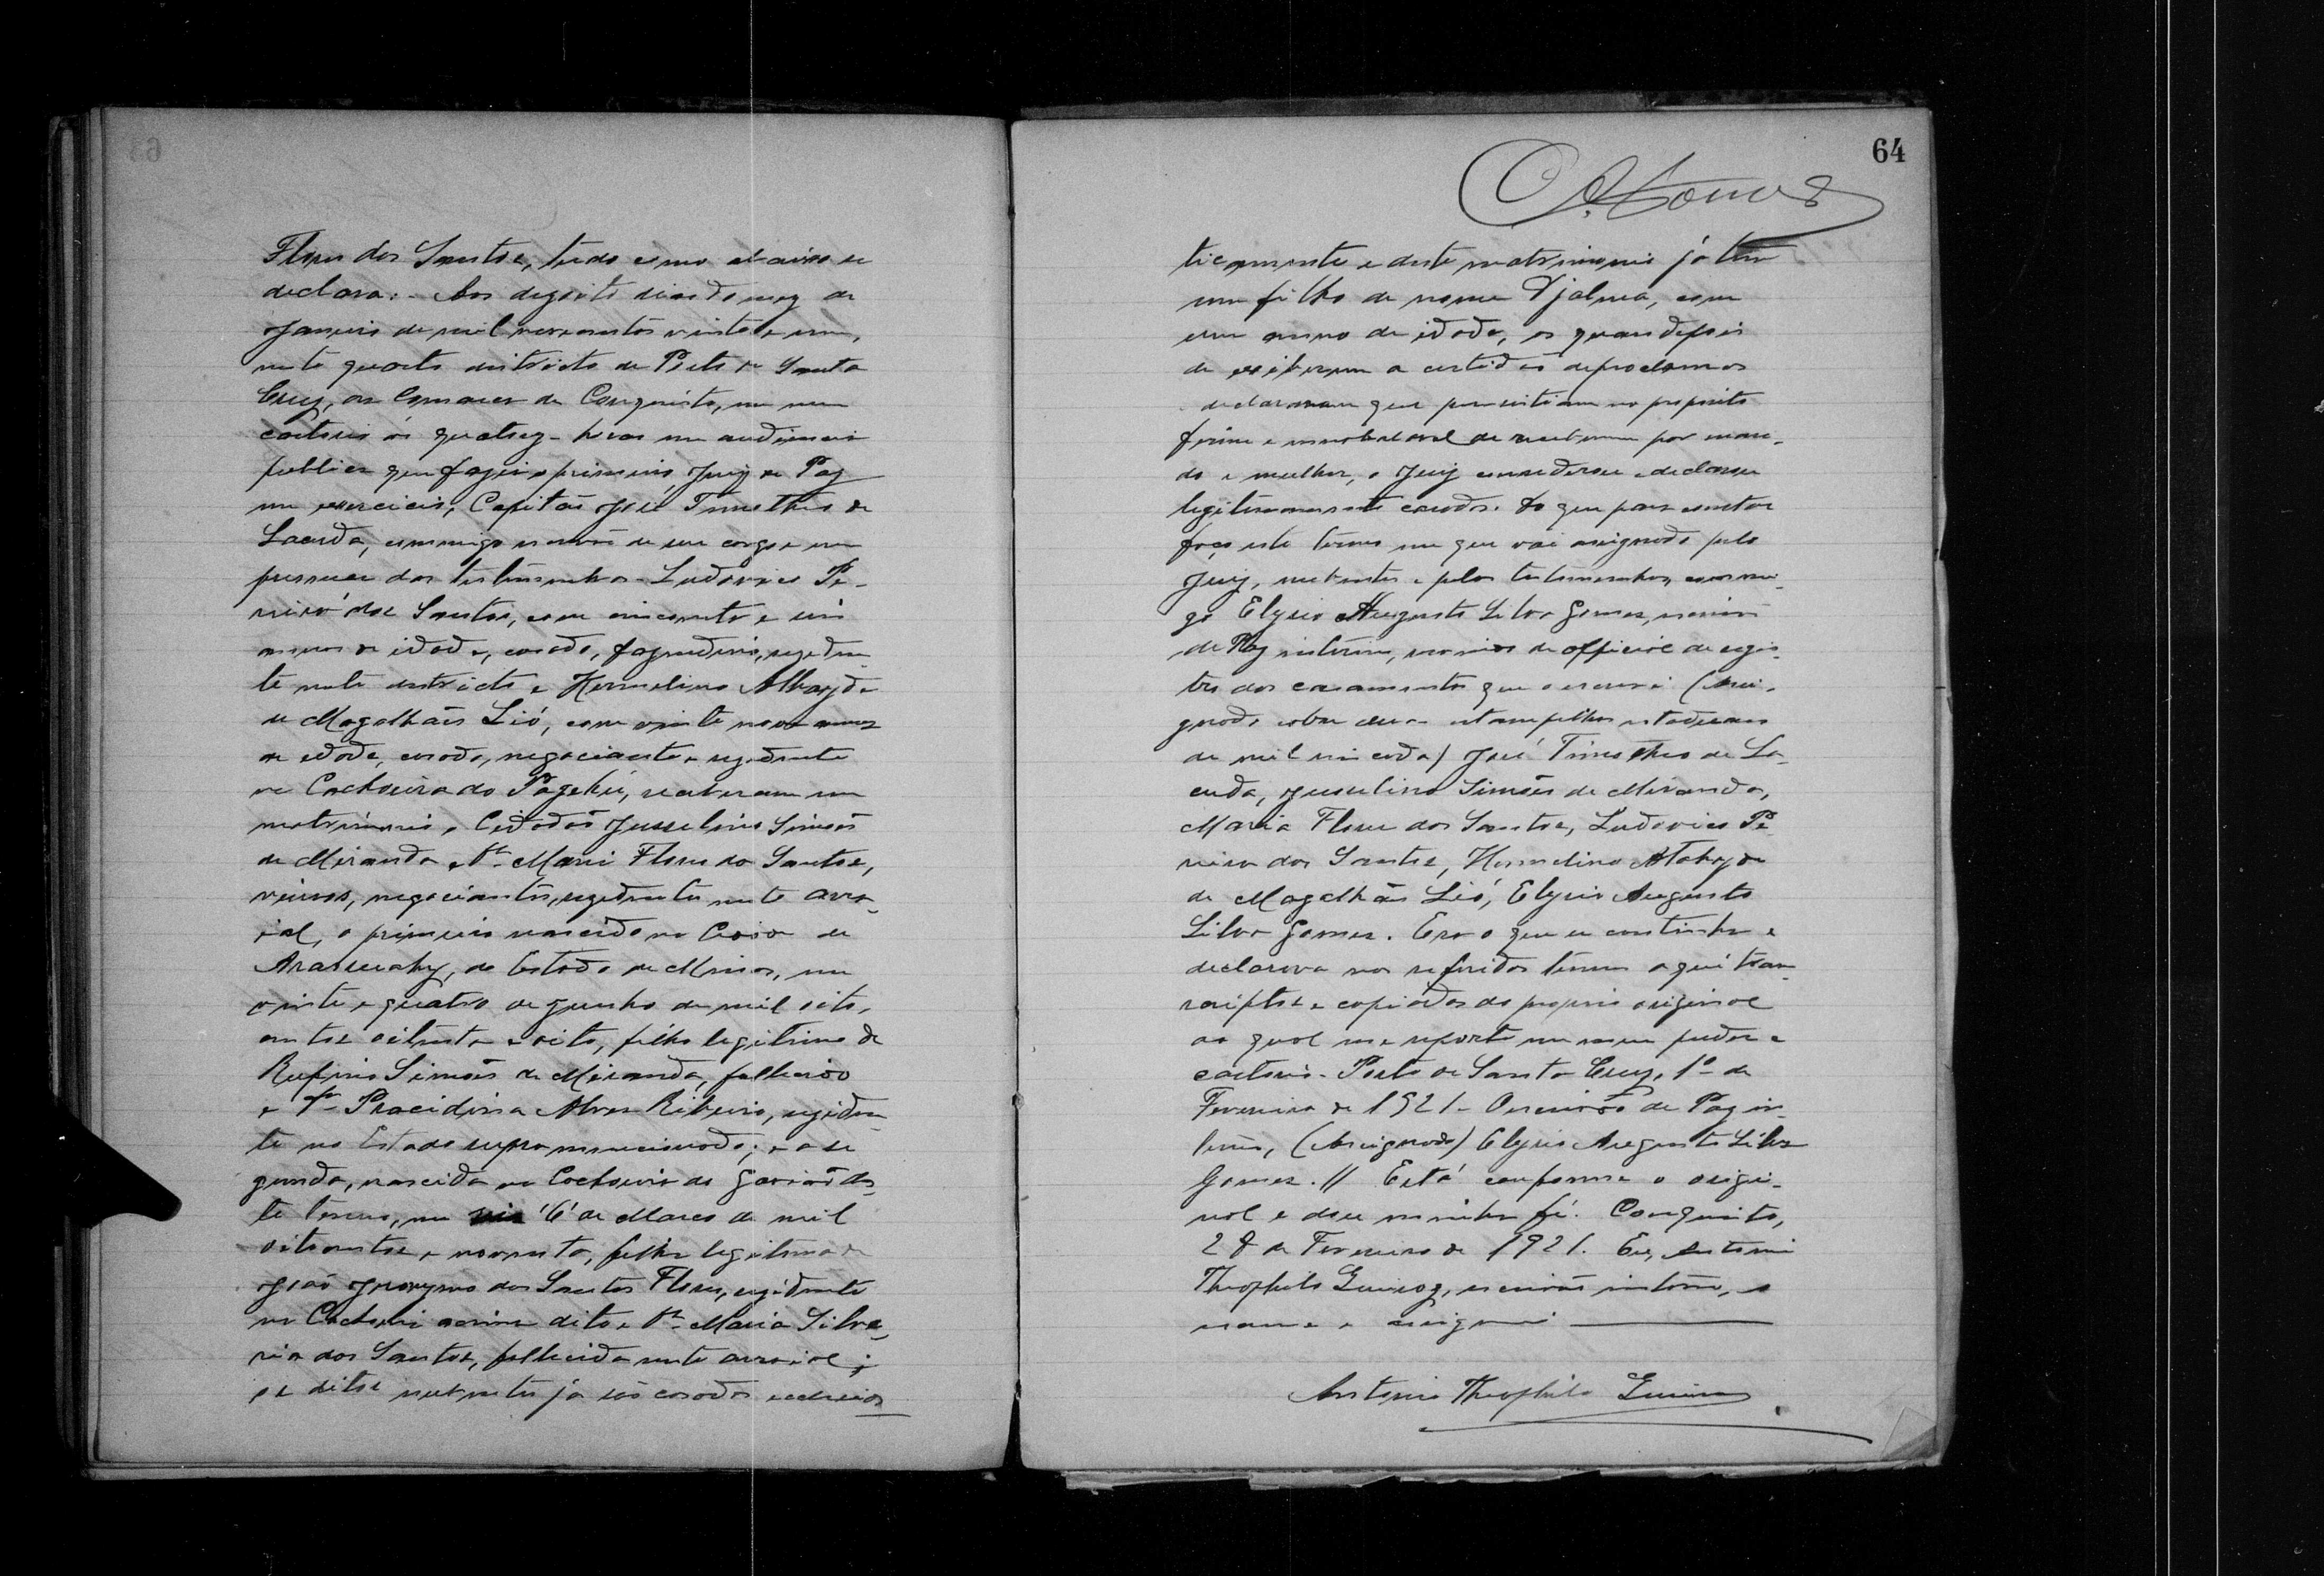 Flores dos Santos, tudo como abaixo se
declara:- Aos dezoito dias do mez de
Janeiro de mil novecentos vinte e um,
neste quarto districto de Porto de Santa
Cruz, da Comarca de Conquista, em meu
cartorio ás quatorze horas em audiencia
publica que fazia o primeiro Juiz de Paz
em exercicio, Capitão José Timotheo de
Lacerda, commigo escrivão de seu cargo e em
presença das testimunhas Ludovico Pe-
reira dos Santos, com cincoenta e seis
annos de idade, casado, fazendeiro, reziden-
te neste districto e Hermelino Athayde
de Magalhães Lió, com vinte nove annos
de edade, casado, negociante e rezidente
na Cachoeira do Pagehú, receberam em
matrimonio, o Cidadão Jusselino Simões
de Miranda e Da Maria Flores dos Santos,
viuvos, negociantes, rezidentes neste arra-
ial, o primeiro nascido no
Arassuahy, do Estado de Minas, em
vinte e quatro de Junho de mil oito-
centos oitenta e oito, filho legitimo de
Rufino Simões de Miranda, fallecido
e Da Placidina Alves Ribeiro, reziden-
te no Estado supra mencionado; e a se
gunda, nascida na Cachoeira do Gavião des-
te termo, em 6 de Março de mil
oitocentos e noventa, filha legitima de
João Jeronymo dos Santos Flores, rezidente
na Cachoeira acima dita e Da Maria Silve-
ria dos Santos, fallecida neste arraial;
os ditos nubentes já são casados ecclesias
64
ticamente e deste matrimonio já tem
um filho de nome Djalma, com
um anno de idade, os quaes depois
de exibirem a certidão de proclamas
declararam que persistiam no proposito
firme e inabalavel de receberem por mari-
do e mulher, o Juiz considerou e declarou
legitimamente casados. Do que para constar
faço este termo em que vai assignado pelo
Juiz, nubentes e pelas testemunhas, commi-
go Elysio Augusto Silva Gomes, escrivão
de Paz interino, servindo de official de regis-
tro dos casamentos que o escrevi (Assi-
gnado sobre duas estampilhas estaduaes
de mil reis cada) José Timotheo de La-
cerda, Jusselino Simões de Miranda,
Maria Flores dos Santos, Ludovico Pe
reira dos Santos, Hermelino Athayde
de Magalhães Lió, Elysio Augusto
Silva Gomes. Era o que se continha e
declarava nos referidos termos aqui tran-
scriptos e copiados do proprio original
ao qual me reporto em meu poder e
cartorio. Porto de Santa Cruz, 1º de
Fevereiro de 1921. O escrivão de Paz in-
terino, (Assignado) Elysio Augusto Silva
Gomes. // Está conforme o origi-
nal e dou minha fé. Conquista,
28 de Fevereiro de 1921. Eu, Antonio
Theophilo Queiroz, escrivão interino, o
escrevi e assignei
Antonio Theophilo Queiroz